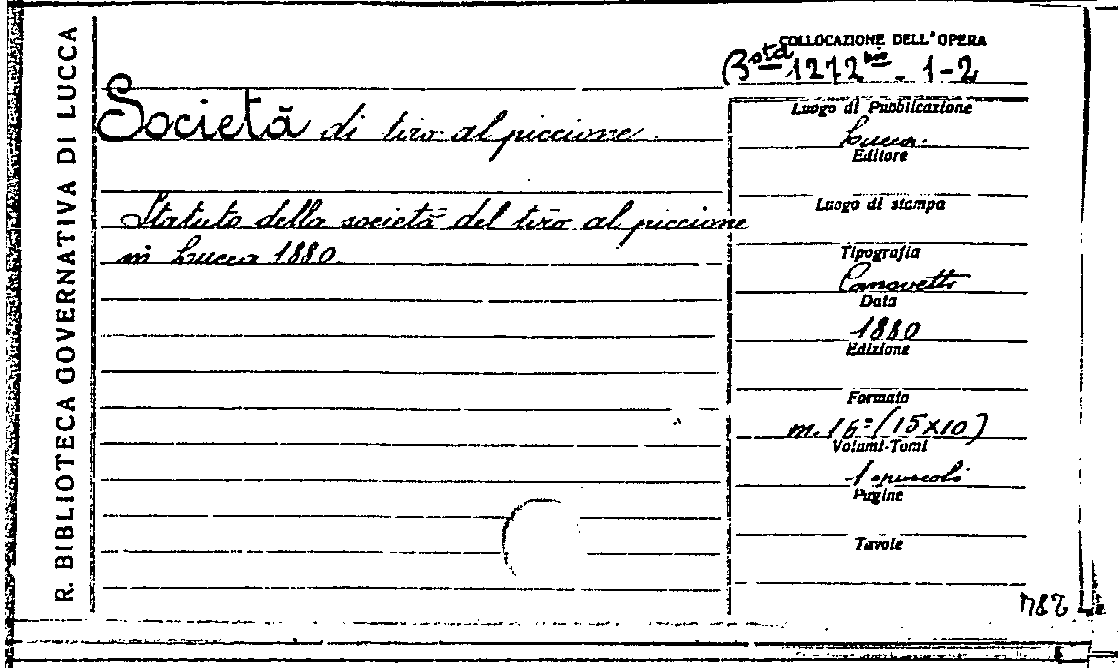 R. BIBLIOTECA GOVERNATIVA DI LUCCA
Società di tiro al piccione
Statuto della società del tiro al piccione
in Lucca 1880.
COLLOCAZIONE DELL'OPERA
Bstd 1272 bis - 1-2
Luogo di Pubblicazione
Lucca.
Editore
Luogo di stampa
Tipografia
Canovetti
Data
1880
Edizione
Formato
in. 16° (15×10)
Volumi-Tomi
1 opuscoli
Pagine
Tavole